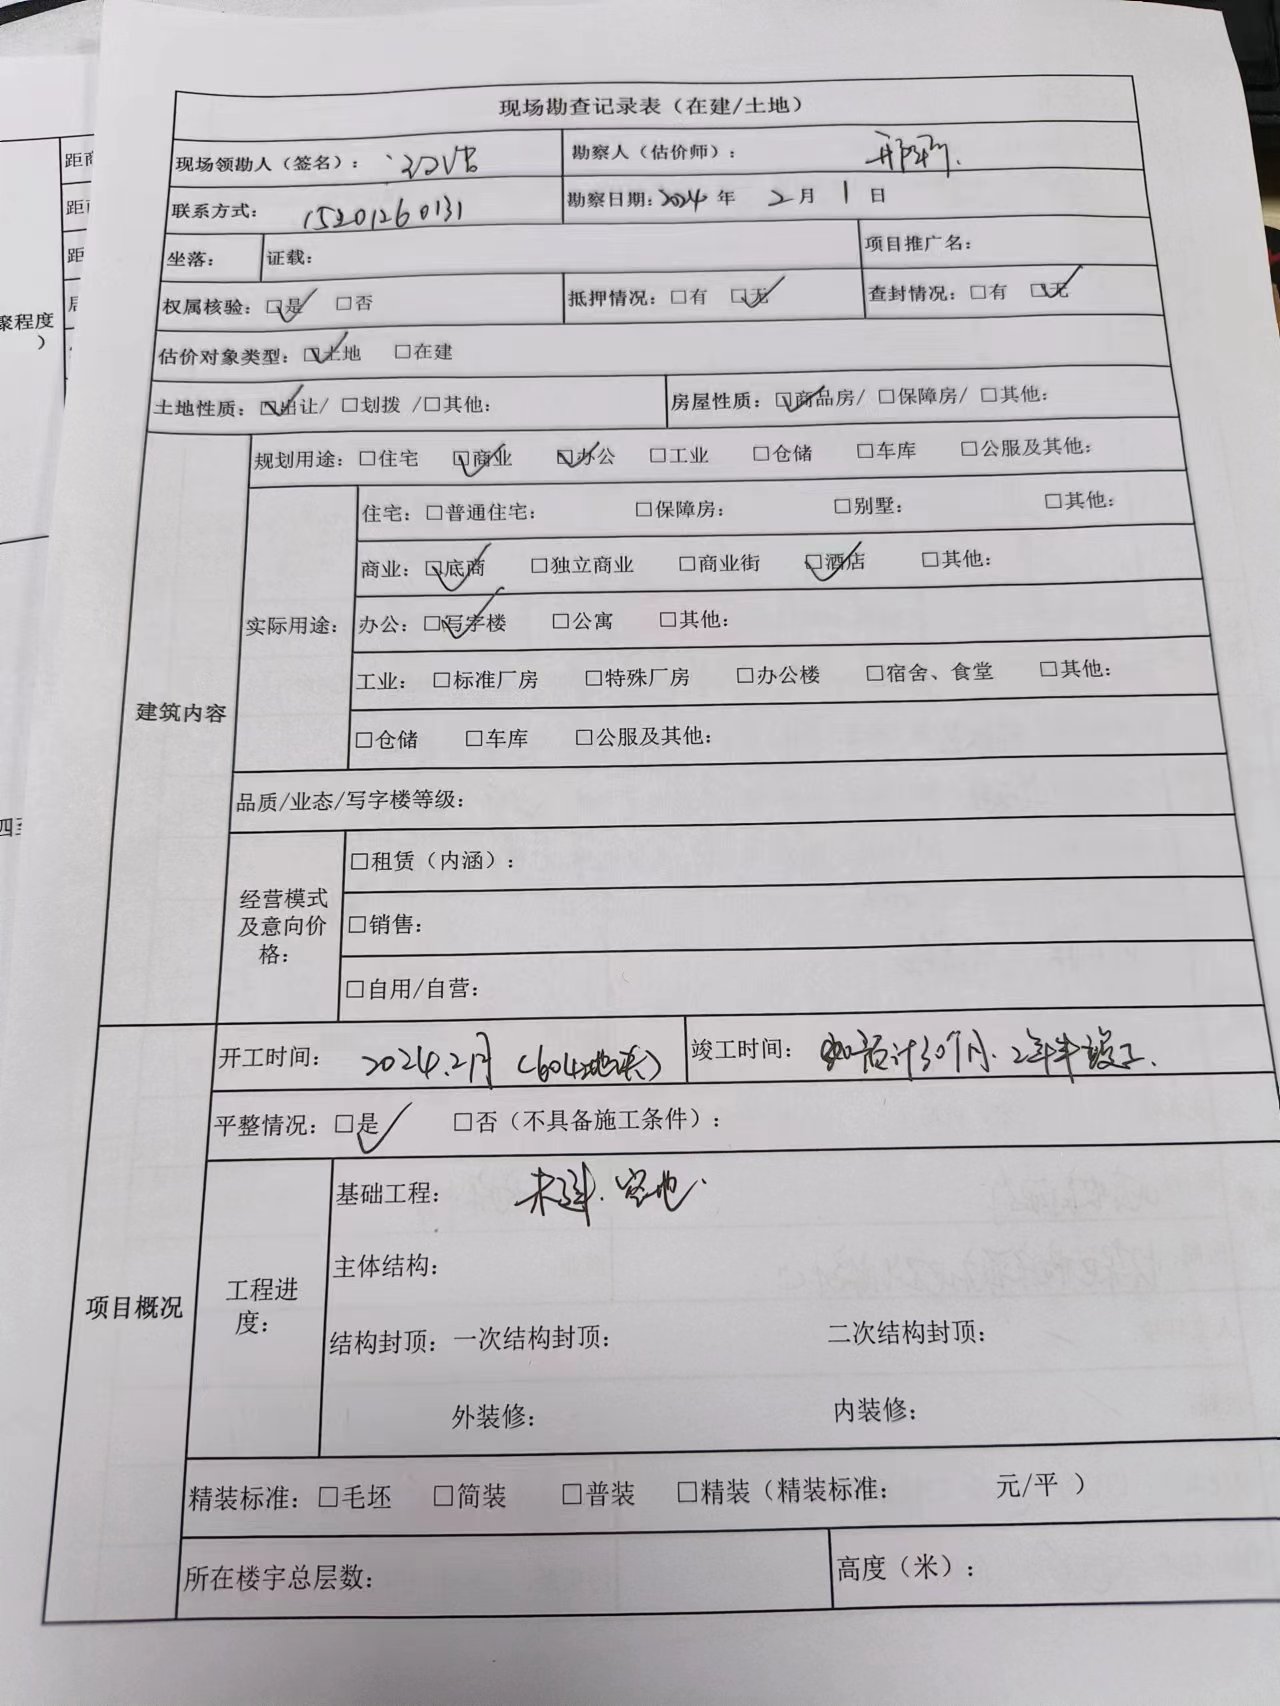 现场勘查记录表（在建/土地）
现场领勘人（签名）：
勘察人（估价师）：
联系方式： 15201260131
勘察日期：2024 年 2 月 1 日
坐落： 证载： 项目推广名：
权属核验：☑是 □否 抵押情况：□有 ☑无 查封情况：□有 ☑无
估价对象类型：☑土地 □在建
土地性质：☑出让/ □划拨 /□其他： 房屋性质：☑商品房/ □保障房/ □其他：
建筑内容
规划用途：□住宅 ☑商业 ☑办公 □工业 □仓储 □车库 □公服及其他：
实际用途：
住宅：□普通住宅： □保障房： □别墅： □其他：
商业：☑底商 □独立商业 □商业街 ☑酒店 □其他：
办公：☑写字楼 □公寓 □其他：
工业： □标准厂房 □特殊厂房 □办公楼 □宿舍、食堂 □其他：
□仓储 □车库 □公服及其他：
品质/业态/写字楼等级：
经营模式
及意向价
格：
□租赁（内涵）：
□销售：
□自用/自营：
项目概况
开工时间： 2024.2月（604地块） 竣工时间： 计30个月.2年半竣工.
平整情况：☑是 □否（不具备施工条件）：
工程进
度：
基础工程： 未建.空地.
主体结构：
结构封顶：一次结构封顶： 二次结构封顶：
外装修： 内装修：
精装标准：□毛坯 □简装 □普装 □精装（精装标准： 元/平 ）
所在楼宇总层数： 高度（米）：
距
距
距
聚程度
）